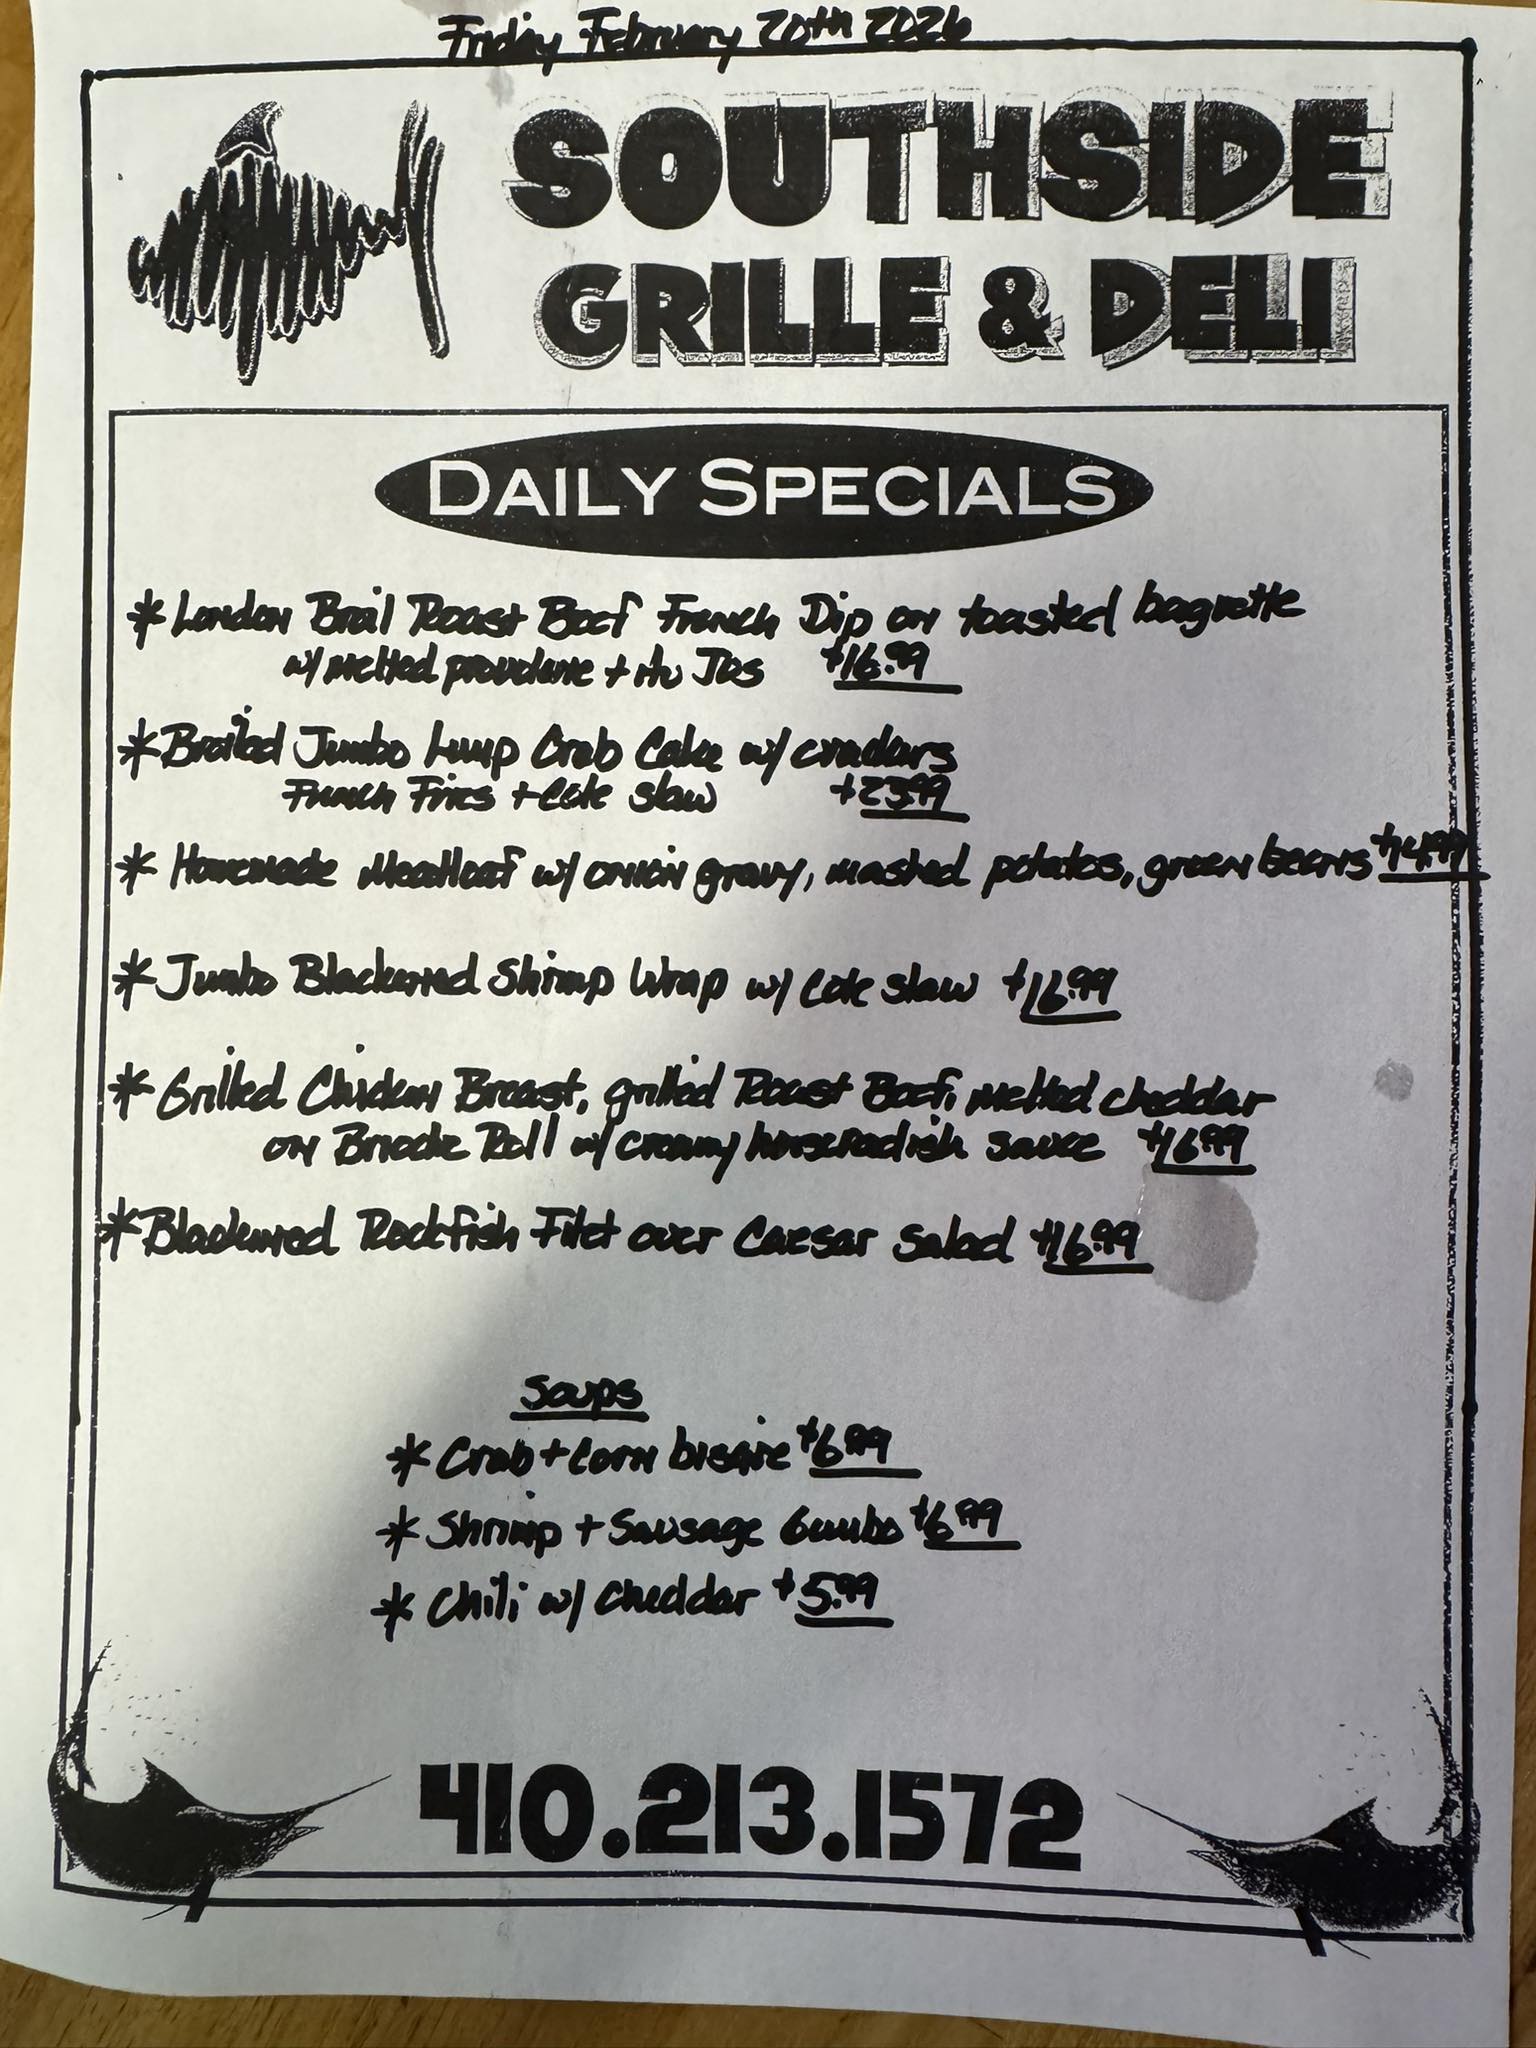 Friday February 20th 2026
SOUTHSIDE
GRILLE & DELI
DAILY SPECIALS
* London Broil Roast Beef French Dip on toasted baguette
w/ melted provolone + Au Jus $16.99
* Broiled Jumbo Lump Crab Cake w/ crackers
French Fries + Cole slaw $23.99
* Homemade Meatloaf w/ onion gravy, mashed potatoes, green beans $14.99
* Jumbo Blackened Shrimp Wrap w/ Cole slaw $16.99
* Grilled Chicken Breast, grilled Roast Beef, melted cheddar
on Brioche Roll w/ creamy horseradish sauce $16.99
* Blackened Rockfish Filet over Caesar Salad $16.99
Soups
* Crab + Corn bisque $6.99
* Shrimp + Sausage Gumbo $6.99
* Chili w/ Cheddar $5.99
410.213.1572